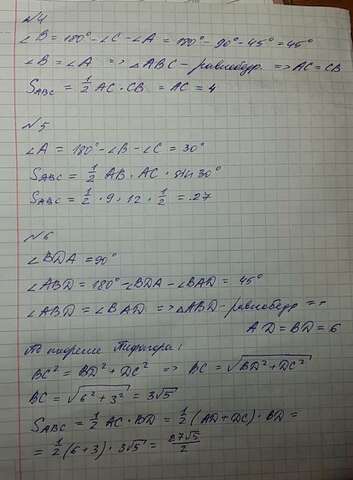 №4
∠B = 180° - ∠C - ∠A = 180° - 90° - 45° = 45°
∠B = ∠A => △ABC - равнобедр. => AC = CB
S_ABC = 1/2 AC · CB = AC = 4
№5
∠A = 180° - ∠B - ∠C = 30°
S_ABC = 1/2 AB · AC · sin 30°
S_ABC = 1/2 · 9 · 12 · 1/2 = 27
№6
∠BDA = 90°
∠ABD = 180° - ∠BDA - ∠BAD = 45°
∠ABD = ∠BAD => △ABD - равнобедр =>
AD = BD = 6
По теореме Пифагора:
BC² = BD² + DC² => BC = √(BD² + DC²)
BC = √(6² + 3²) = 3√5
S_ABC = 1/2 AC · BD = 1/2 (AD + DC) · BD =
= 1/2 (6 + 3) · 3√5 = 27√5/2